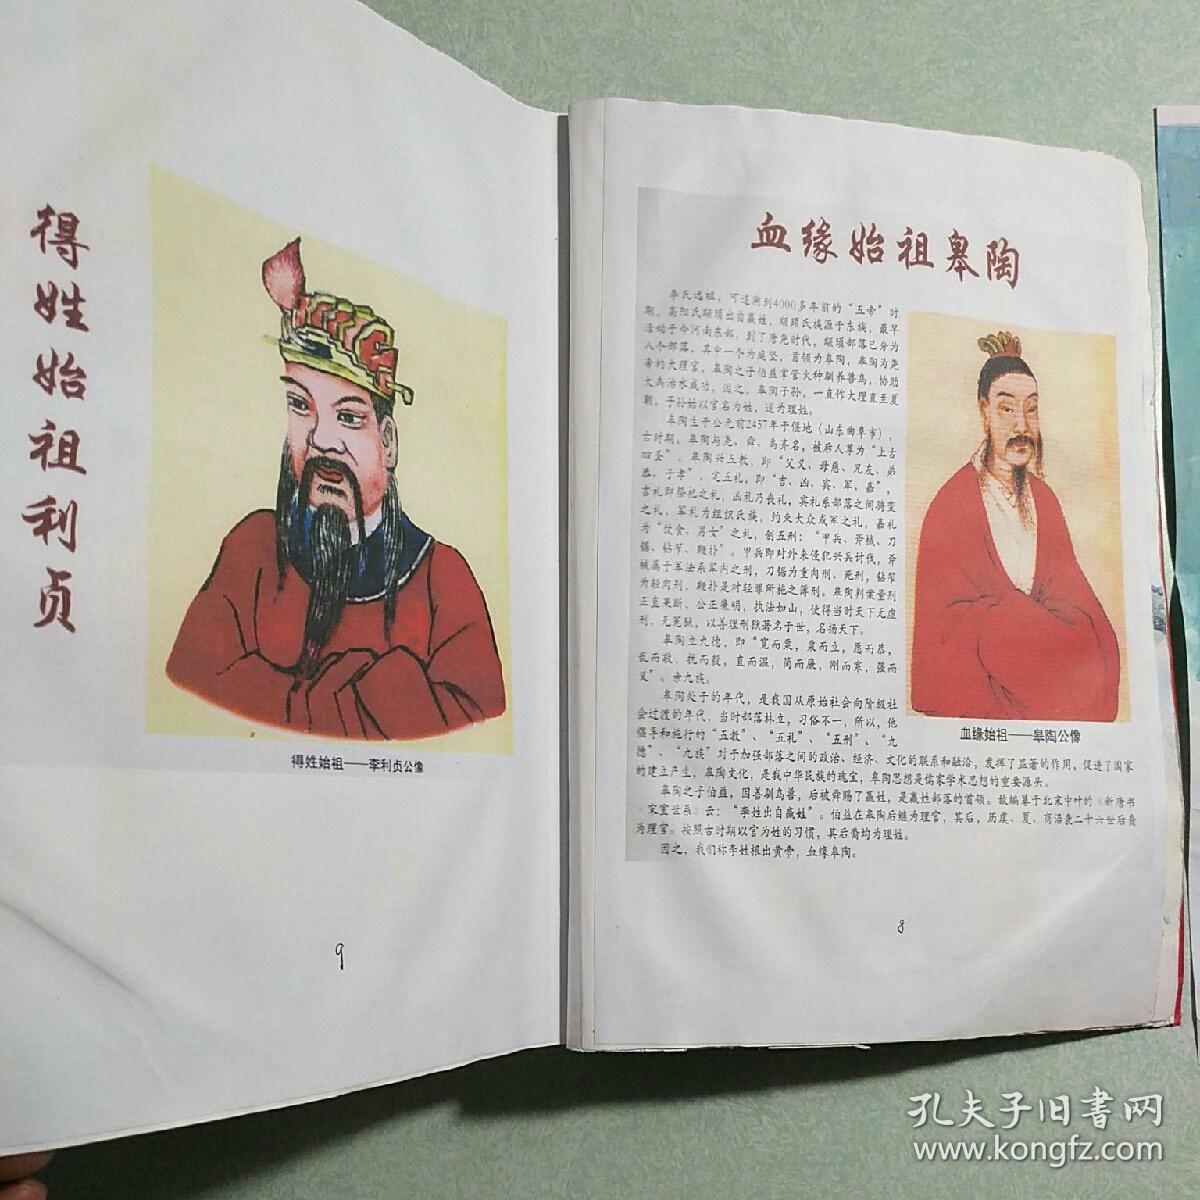 得姓始祖利贞
得姓始祖——李利贞公像
9
血缘始祖皋陶
李氏远祖，可追溯到4000多年前的“五帝”时
期。高阳氏颛顼出自嬴姓，颛顼氏族源于东族，最早
活动于今河南东部，到了唐尧时代，颛顼部落已分为
八个部落，其中一个为庭坚，首领为皋陶，皋陶为尧
帝的大理官，皋陶之子伯益掌管火种驯养兽鸟，协助
大禹治水成功。因之，皋陶子孙，一直作大理直至夏
朝。子孙始以官名为姓，逐为理姓。
皋陶生于公元前2457年于偃地（山东曲阜市），
古时期，皋陶与尧、舜、禹齐名，被后人尊为“上古
四圣”。皋陶兴五教，即“父义、母慈、兄友、弟
恭、子孝”，定五礼，即“吉、凶、宾、军、嘉”，
吉礼即祭祀之礼，凶礼乃丧礼，宾礼系部落之间聘
之礼，军礼为组织氏族，约束大众成军之礼，嘉礼
为“饮食、男女”之礼，创五刑：“甲兵、斧械、刀
锯、钻笮、鞭扑”。甲兵即对外来侵犯兴兵讨伐，斧
械属于军法系军内之刑，刀锯为重肉刑、死刑，钻笮
为轻肉刑，鞭扑是对轻罪所施之薄刑。皋陶判案量刑
正直果断，公正廉明，执法如山，使得当时天下无虐
刑，无冤狱，以善理刑狱著名于世，名扬天下。
皋陶立九德，即“宽而栗，柔而立，愿而恭，
乱而敬，扰而毅，直而温，简而廉，刚而寒，强而
义”。亲九族。
皋陶处于的年代，是我国从原始社会向阶级社
会过渡的年代，当时部落林立，习俗不一，所以，他
倡导和施行的“五教”、“五礼”、“五刑”、“九
德”、“九族”对于加强部落之间的政治、经济、文化的联系和融洽，发挥了显著的作用，促进了国家
的建立产生，皋陶文化，是我中华民族的瑰宝，皋陶思想是儒家学术思想的重要源头。
皋陶之子伯益，因善驯鸟兽，后被舜赐了嬴姓，是嬴姓部落的首领。故编纂于北宋中叶的《新唐书
·宗室世系》云：“李姓出自嬴姓”。伯益在皋陶后继为理官，其后，历虞、夏、商洽袭二十六世后裔
为理官。按照古时期以官为姓的习惯，其后裔均为理姓。
因之，我们称李姓根出黄帝，血缘皋陶。
血缘始祖——皋陶公像
8
孔夫子旧书网
www.kongfz.com